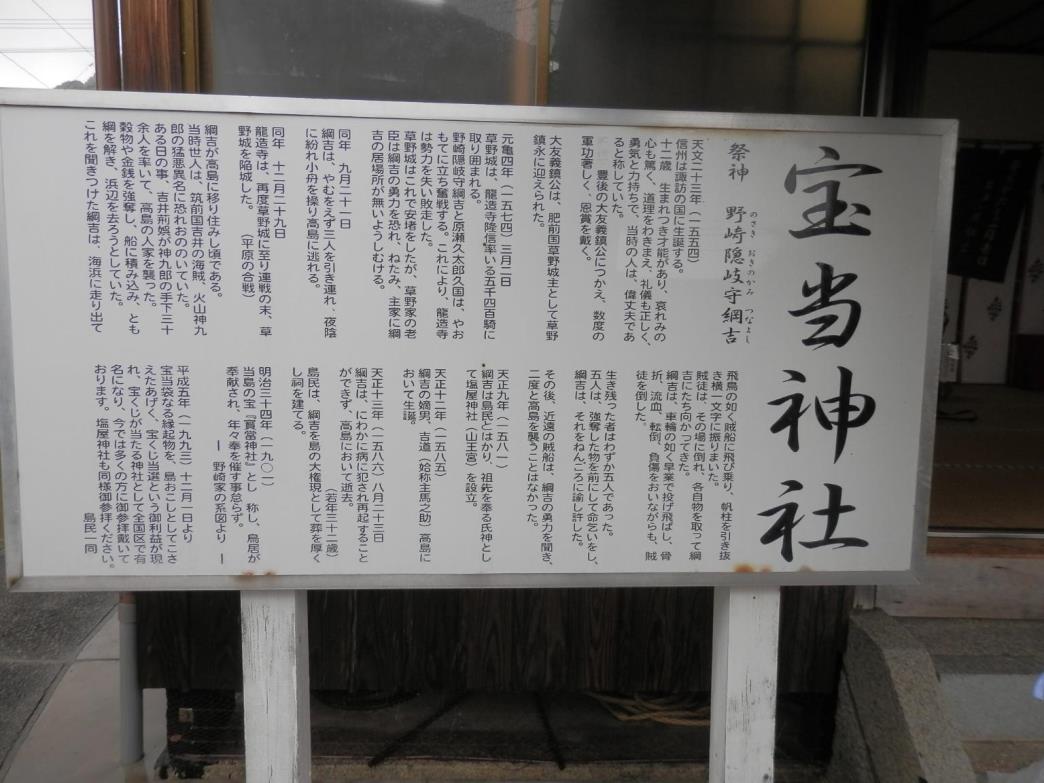 宝当神社
祭神　野崎隠岐守綱吉
のざき　おきのかみ　つなよし
天文二十三年（一五五四）
信州は諏訪の国に生誕する。
十二歳　生まれつき才能があり、哀れみの
心も篤く、道理をわきまえ、礼儀も正しく、
勇気と力持ちで、当時の人は、偉丈夫であ
ると称していた。
豊後の大友義鎮公につかえ、数度の
軍功著しく、恩賞を戴く。
大友義鎮公は、肥前国草野城主として草野
鎮永に迎えられた。
元亀四年（一五七四）三月二日
草野城は、龍造寺隆信率いる五千四百騎に
取り囲まれる。
野崎隠岐守綱吉と原瀬久太郎久国は、やお
もてに立ち奮戦する。これにより、龍造寺
は勢力を失い敗走した。
草野城はこれで安堵をしたが、草野家の老
臣は綱吉の勇力を恐れ、ねたみ、主家に綱
吉の居場所が無いようしむける。
同年　九月二十一日
綱吉は、やむをえず三人を引き連れ、夜陰
に紛れ小舟を操り高島に逃れる。
同年　十二月二十九日
龍造寺は、再度草野城に至り連戦の末、草
野城を陥城した。　（平原の合戦）
綱吉が高島に移り住みし頃である。
当時世人は、筑前国吉井の海賊、火山神九
郎の猛悪異名に恐れおののいていた。
ある日の事、吉井形娯が神九郎の手下三十
余人を率いて、高島の人家を襲った。
穀物や金銭を強奪し、船に積み込み、とも
綱を解き、浜辺を去ろうとしていた。
これを聞きつけた綱吉は、海浜に走り出て
飛鳥の如く賊船に飛び乗り、帆柱を引き抜
き横一文字に振りまいた。
賊徒は、その場に倒れ、各自物を取って綱
吉にたち向かってきた。
綱吉は、車輪の如く早業で投げ飛ばし、骨
折、流血、転倒、負傷をおいながらも、賊
徒を倒した。
生き残った者はわずか五人であった。
五人は、強奪した物を前にして命乞いをし、
綱吉は、それをねんごろに諭し許した。
その後、近遠の賊船は、綱吉の勇力を聞き、
二度と高島を襲うことはなかった。
天正九年（一五八一）
綱吉は島民とはかり、祖先を奉る氏神とし
て塩屋神社（山王宮）を設立。
天正十二年（一五八五）
綱吉の嫡男、吉道（姶称主馬之助）高島に
おいて生誕。
天正十三年（一五八六）八月二十三日
綱吉は、にわかに病に犯され再起すること
ができず、高島において逝去。
（若年三十二歳）
島民は、綱吉を島の大権現として葬を厚く
し祠を建てる。
明治三十四年（一九〇一）
当島の宝『寳當神社』とし　称し、鳥居が
奉献され、年々奉を催す事怠らず。
ー　野崎家の系図より　ー
平成五年（一九九三）十二月一日より
宝当袋なる縁起物を、島おこしとしてこさ
えたあげく、宝くじ当選という御利益が現
れ、宝くじが当たる神社として全国区で有
名になり、今では多くの方に御参拝戴いて
おります。塩屋神社も同様御参拝ください。
島民一同